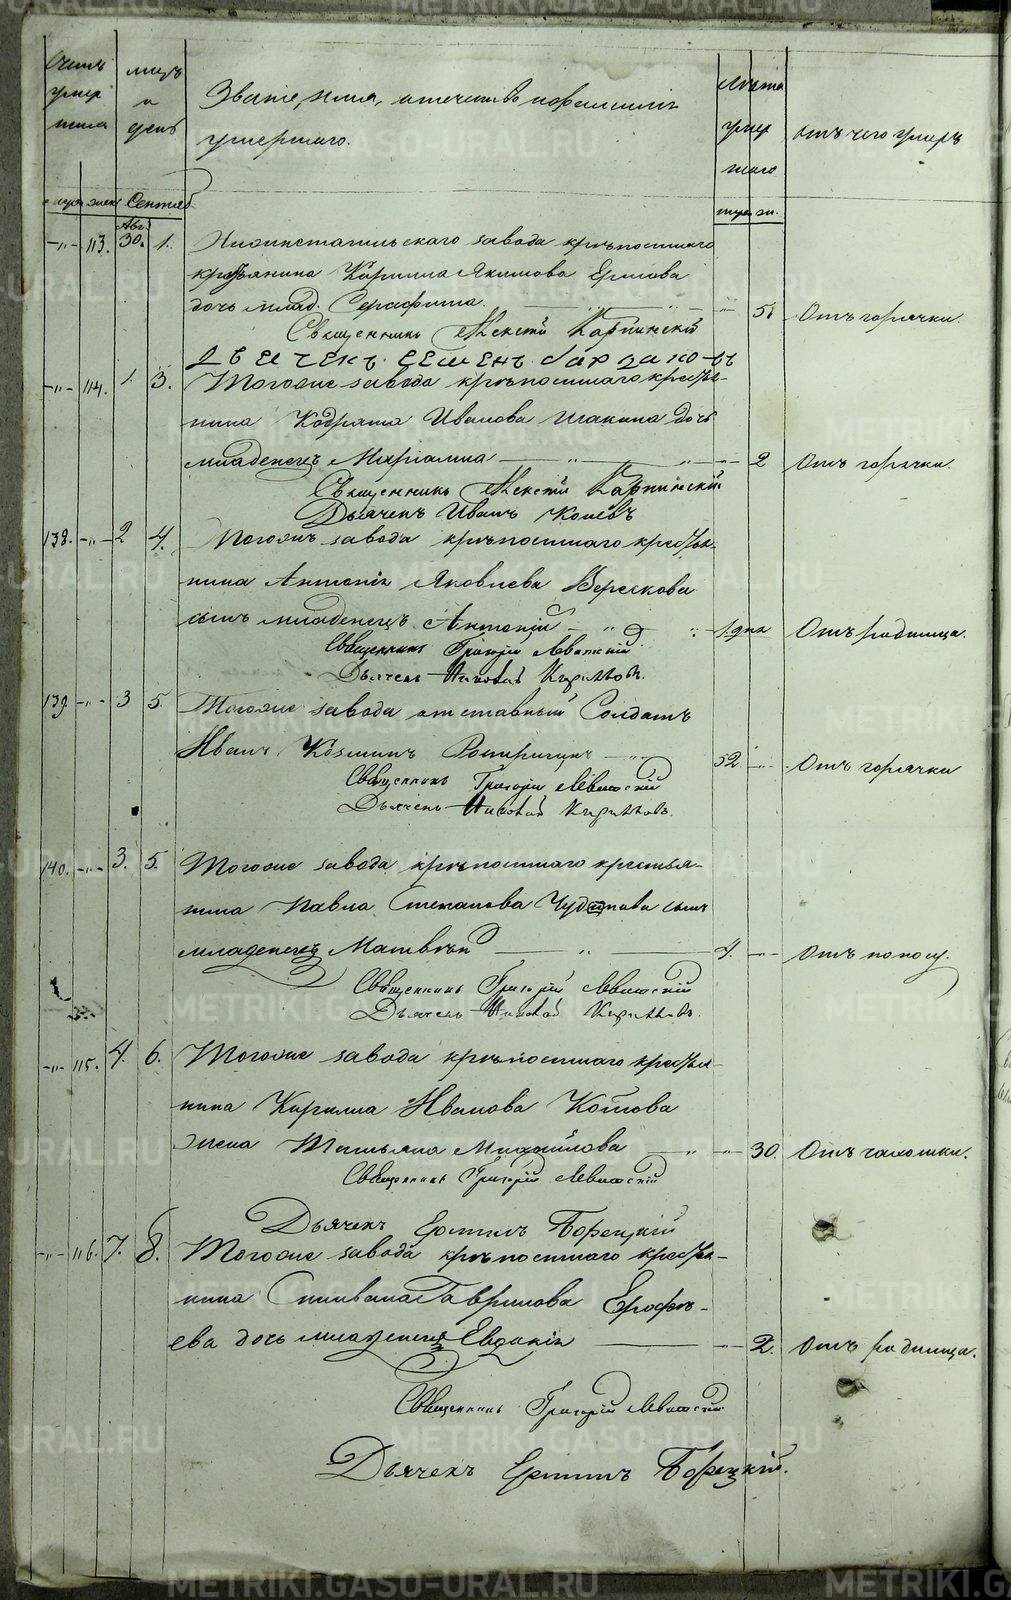 Счетъ умер шихъ
мцъ и день
Званіе, имя, отечество и фамилія умершаго.
Лѣта умер шаго
отъ чего умеръ
муж жен Сентяб муж. жен.
-"- 113. Авг. 30. 1. завода крѣпостнаго
крестьянина Кирилла Якимова Ершова
дочь млад. Серафима. -"- 5 Отъ горячки.
Священникъ Алексѣй Карпинскій
Дьячекъ Семенъ
-"- 114. 1. 3. Тогоже завода крѣпостнаго крестья-
нина Кодрата Иванова дочь
младенецъ Маріамна -"- 2 Отъ горячки.
Священникъ Алексѣй Карпинскій
Дьячекъ Иванъ Коневъ
138. -"- 2 4. Тогожъ завода крѣпостнаго крестья-
нина Антонія Яковлева Верескова
сынъ младенецъ Антоній -"- 1. дня Отъ родимца.
Священникъ Григорій Левитскій
Дьячекъ Николай Кирилловъ.
139. -"- 3 5. Тогоже завода отставный Солдатъ
Иванъ Козминъ 52 -"- Отъ горячки
Священникъ Григорій Левитскій
Дьячекъ Николай Кирилловъ.
140. -"- 3. 5. Тогоже завода крѣпостнаго крестья-
нина Павла Степанова сынъ
младенецъ Матвѣй -"- 4. -"- Отъ поносу.
Священникъ Григорій Левитскій
Дьячекъ Николай Кирилловъ.
-"- 115. 4. 6. Тогоже завода крѣпостнаго крестья-
нина Кирилла Иванова Котова
жена Татьяна Михайлова -"- -"- 30. Отъ чахотки.
Священникъ Григорій Левитскій
Дьячекъ Ермилъ Борецкій
-"- 116. 7. 8. Тогоже завода крѣпостнаго крестья-
нина Гаврилова Ерофѣ-
ева дочь младенецъ Евдокія -"- 2. Отъ родимца.
Священникъ Григорій Левитскій
Дьячекъ Ермилъ Борецкій.
METRIKI.GASO-URAL.RU